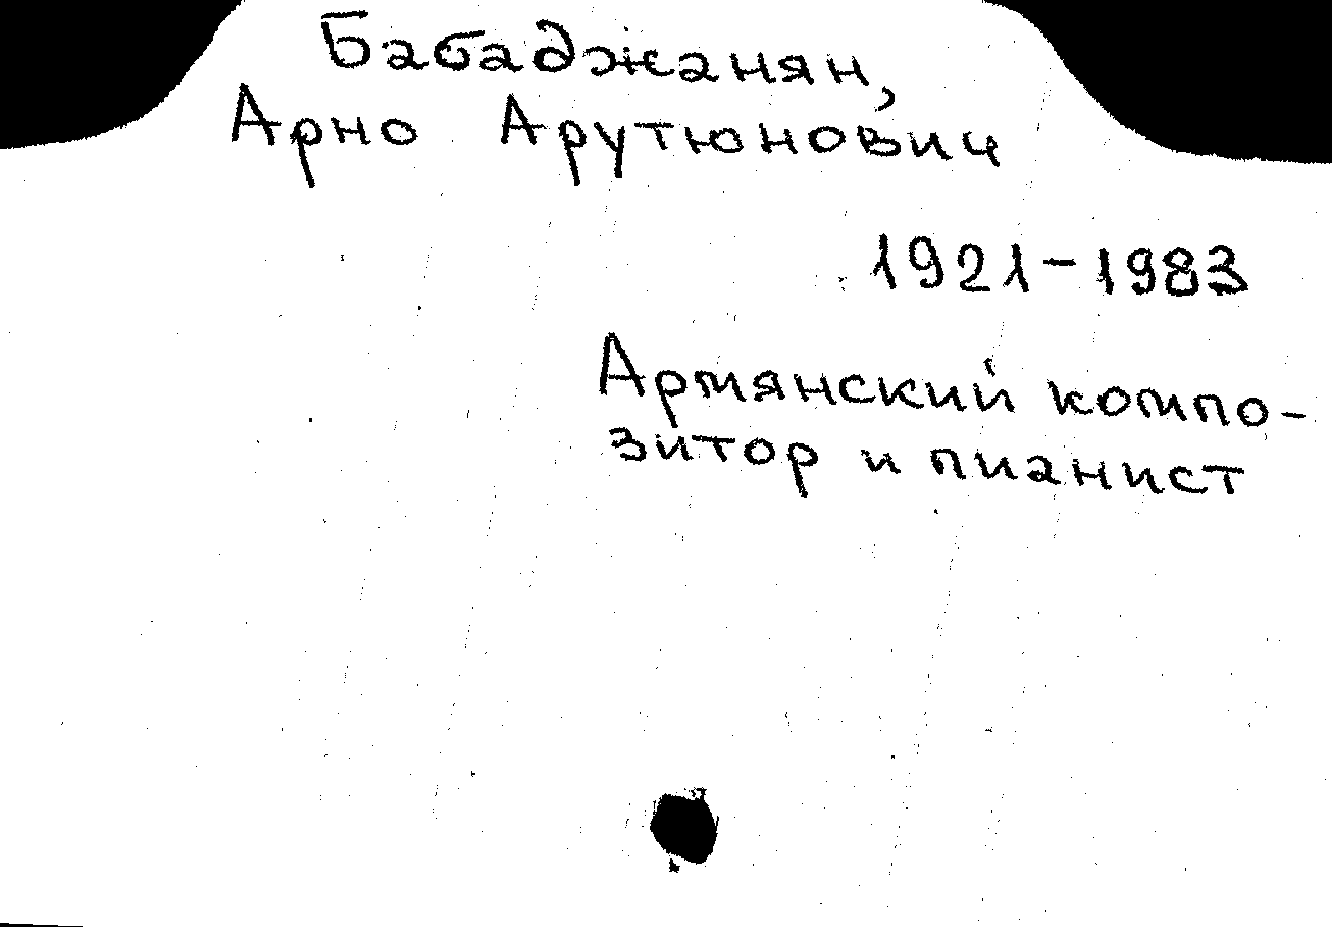 Бабаджанян,
Арно Арутюнович
1921-1983
Армянский компо-
зитор и пианист